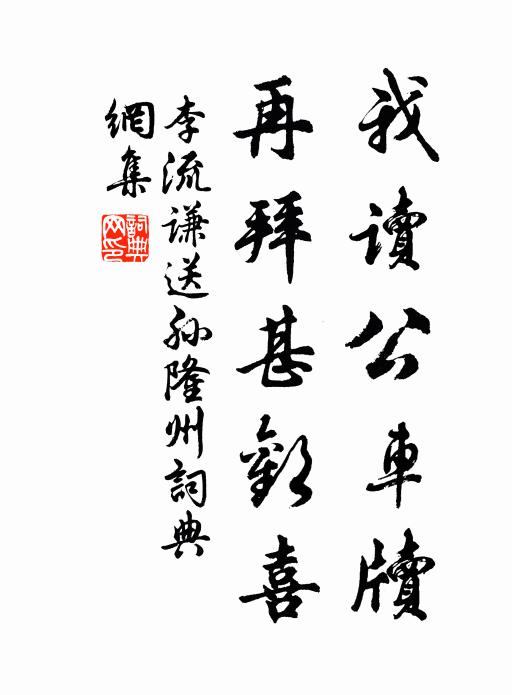 我讀公車牘
再拜甚歡喜
李流谦送孙隆州詞典
網集
詞典網印